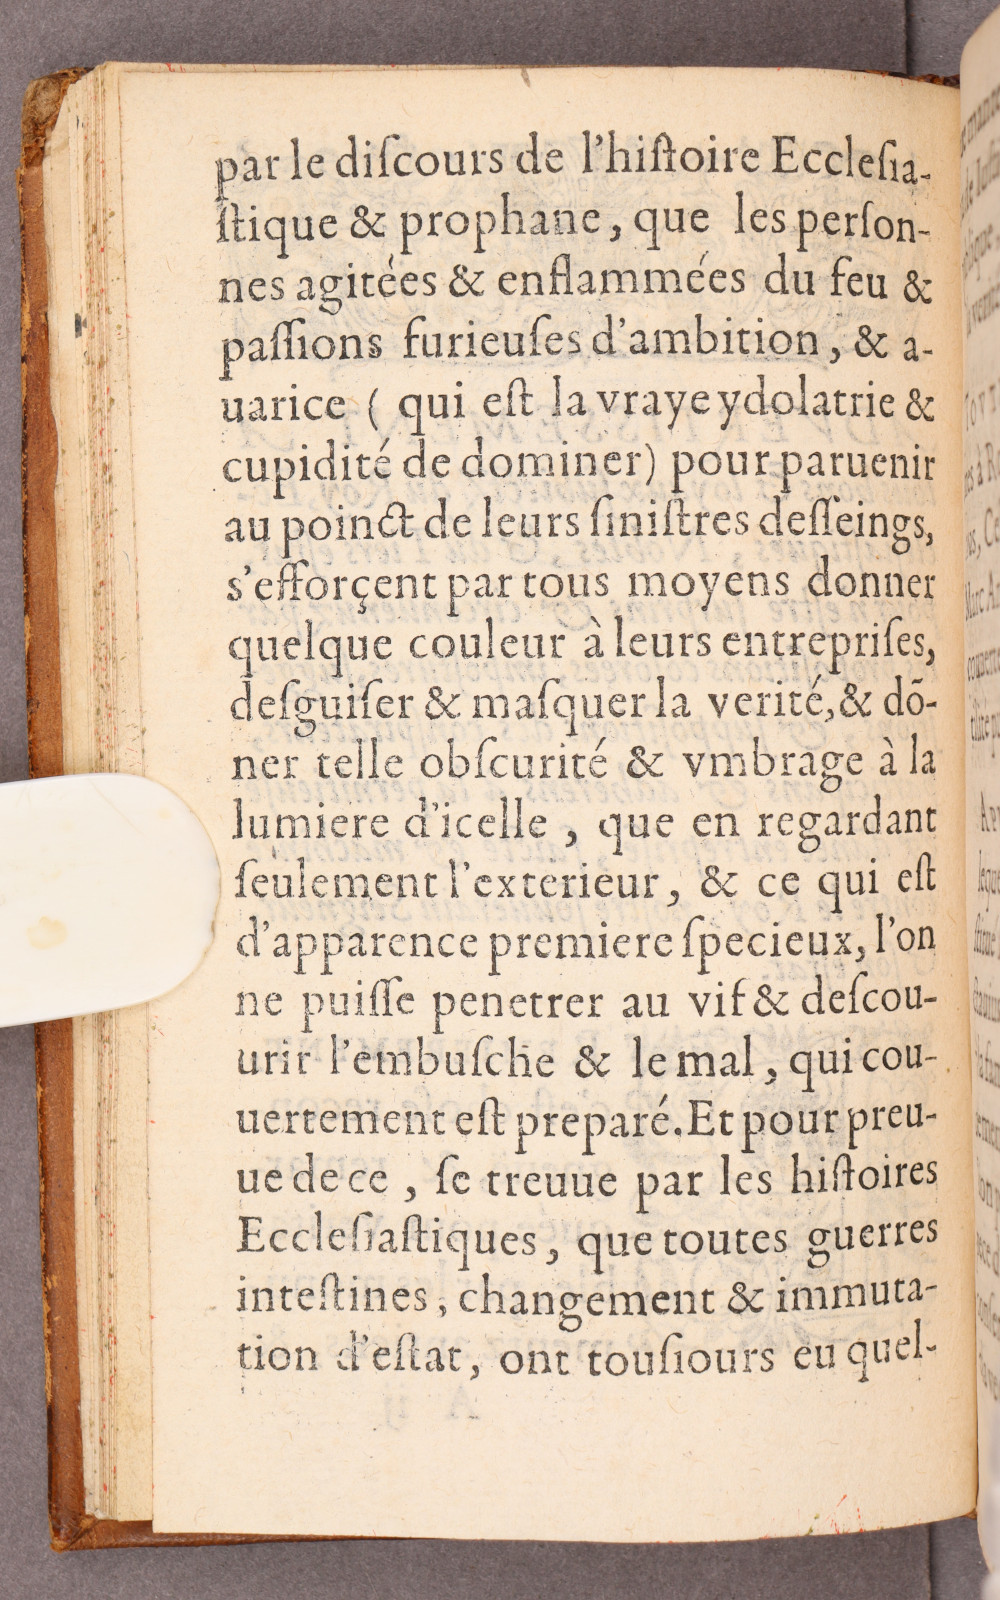 par le diſcours de l'hiſtoire Eccleſia-
ſtique & prophane, que les perſon-
nes agitées & enflammées du feu &
paſſions furieuſes d'ambition, & a-
uarice ( qui eſt la vraye ydolatrie &
cupidité de dominer) pour paruenir
au poinct de leurs ſiniſtres deſſeings,
s'efforçent par tous moyens donner
quelque couleur à leurs entrepriſes,
deſguiſer & maſquer la verité,& dō-
ner telle obſcurité & vmbrage à la
lumiere d'icelle , que en regardant
ſeulement l'exterieur, & ce qui eſt
d'apparence premiere ſpecieux, l'on
ne puiſſe penetrer au vif & deſcou-
urir l'embuſche & le mal, qui cou-
uertement eſt preparé. Et pour preu-
ue de ce , ſe treuue par les hiſtoires
Eccleſiaſtiques, que toutes guerres
inteſtines, changement & immuta-
tion d'eſtat, ont touſiours eu quel-